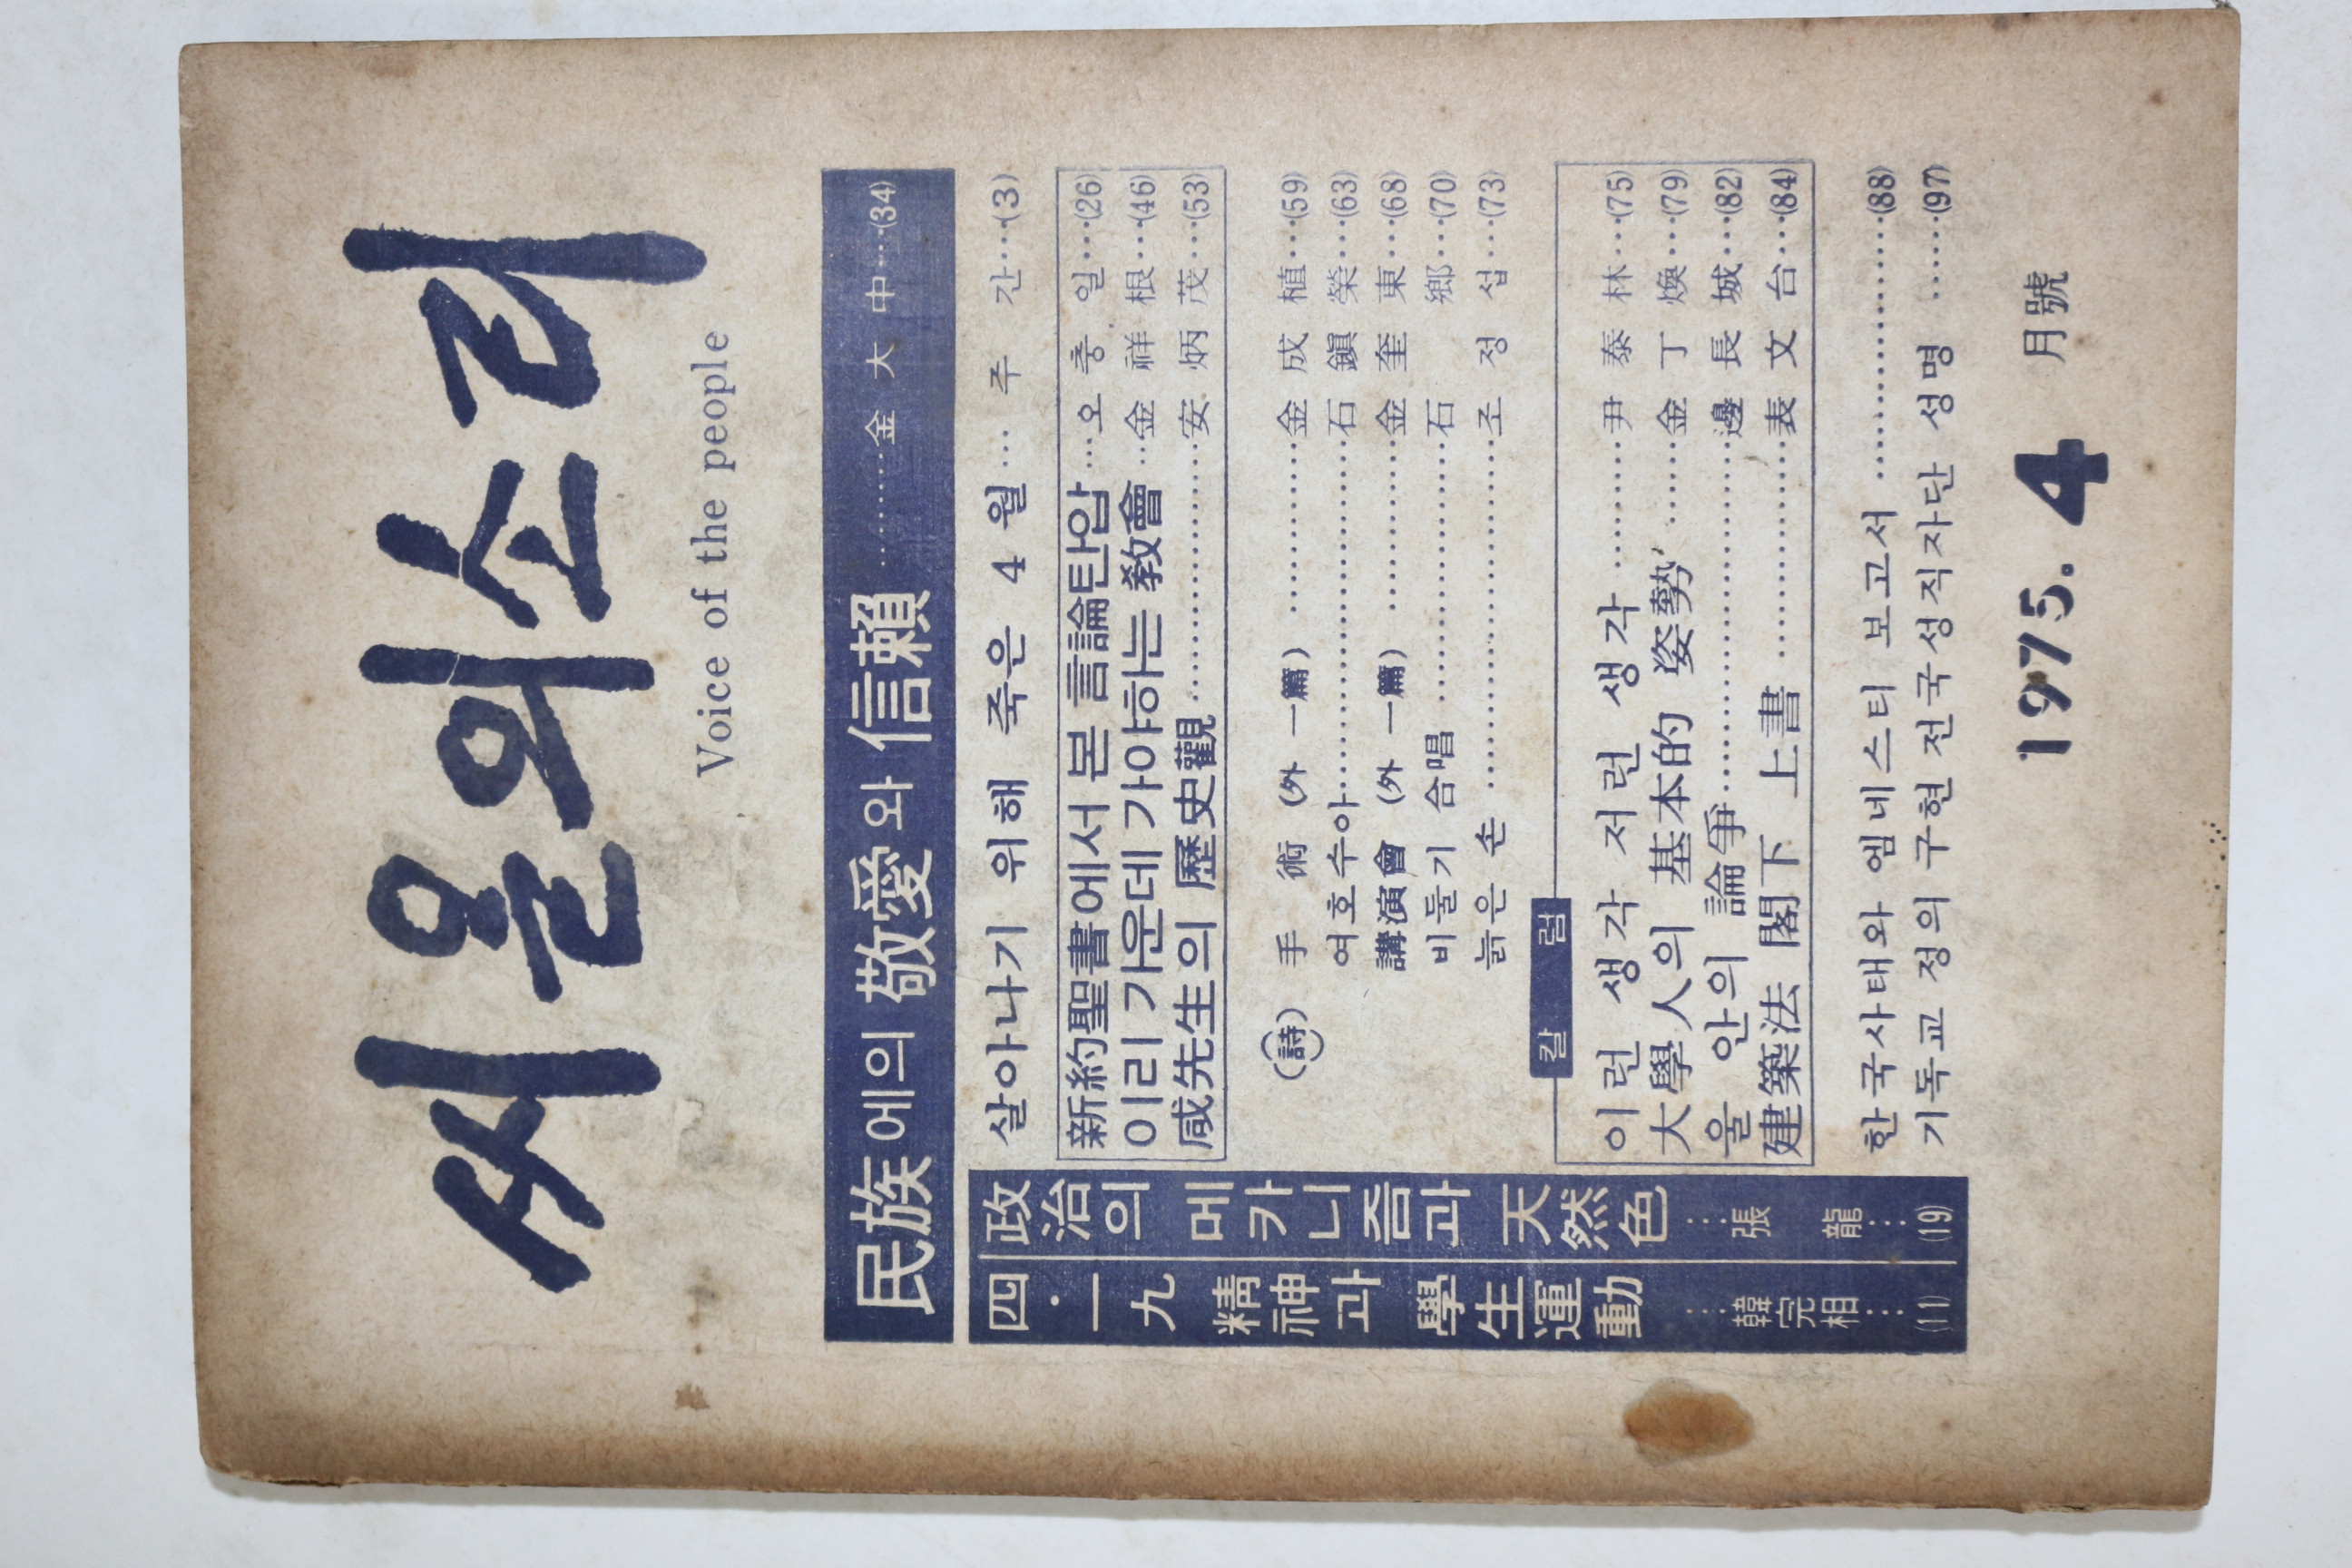 씨ᄋᆞᆯ의소리
Voice of the people
民族에의 敬愛와 信賴 ………金大中…(34)
四·一九 精神과 學生運動 …韓完相…(11)
政治의 메카니즘과 天然色 …張龍…(19)
살아나기 위해 죽은 4월… 주간…(3)
新約聖書에서 본 言論탄압…오충일…(26)
이리 가운데 가야하는 敎會…金祥根…(46)
咸先生의 歷史觀………………安炳茂…(53)
(詩) 手術 (外 一篇) …………金成植…(59)
여호수아……………………石鎭榮…(63)
講演會 (外 一篇) …………金奎東…(68)
비둘기 合唱 ………………石鄕…(70)
늙은 손 ……………………조정섭…(73)
칼럼
이런 생각 저런 생각 ………尹泰林…(75)
大學人의 基本的 姿勢 ……金丁煥…(79)
울 안의 論爭……………………邊長城…(82)
建築法 閣下 上書 ……………表文台…(84)
한국사태와 엠네스티 보고서 ………………(88)
기독교 정의 구현 전국성직자단 성명 ……(97)
1975. 4 月號